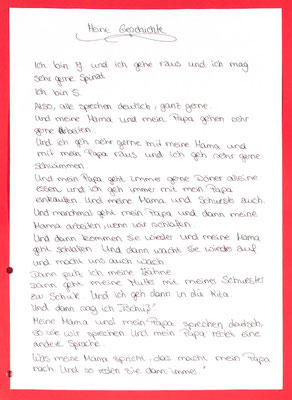 Meine Geschichte
Ich bin Y und ich gehe raus und ich mag
sehr gerne Spinat.
Ich bin 5.
Also, alle sprechen deutsch, ganz gerne.
Und meine Mama und mein Papa gehen sehr
gerne arbeiten.
Und ich geh sehr gerne mit meine Mama und
mit mein Papa raus und ich geh sehr gerne
schwimmen.
Und mein Papa geht immer gerne Döner alleine
essen und ich geh immer mit mein Papa
einkaufen. Und meine Mama und Schwester auch.
Und manchmal geht mein Papa und dann meine
Mama arbeiten, wenn wir schlafen.
Und dann kommen sie wieder und meine Mama
geht schlafen. Und dann wacht sie wieder auf
und macht uns auch wach.
Dann putz ich meine Zähne.
Dann geht meine Mutter mit meine Schwester
zur Schule. Und ich geh dann in die Kita.
Und dann sag ich "Tschüß".
Meine Mama und mein Papa sprechen deutsch,
so wie wir sprechen. Und mein Papa redet eine
andere Sprache.
Was meine Mama spricht, das macht mein Papa
nach. Und so reden sie dann immer."